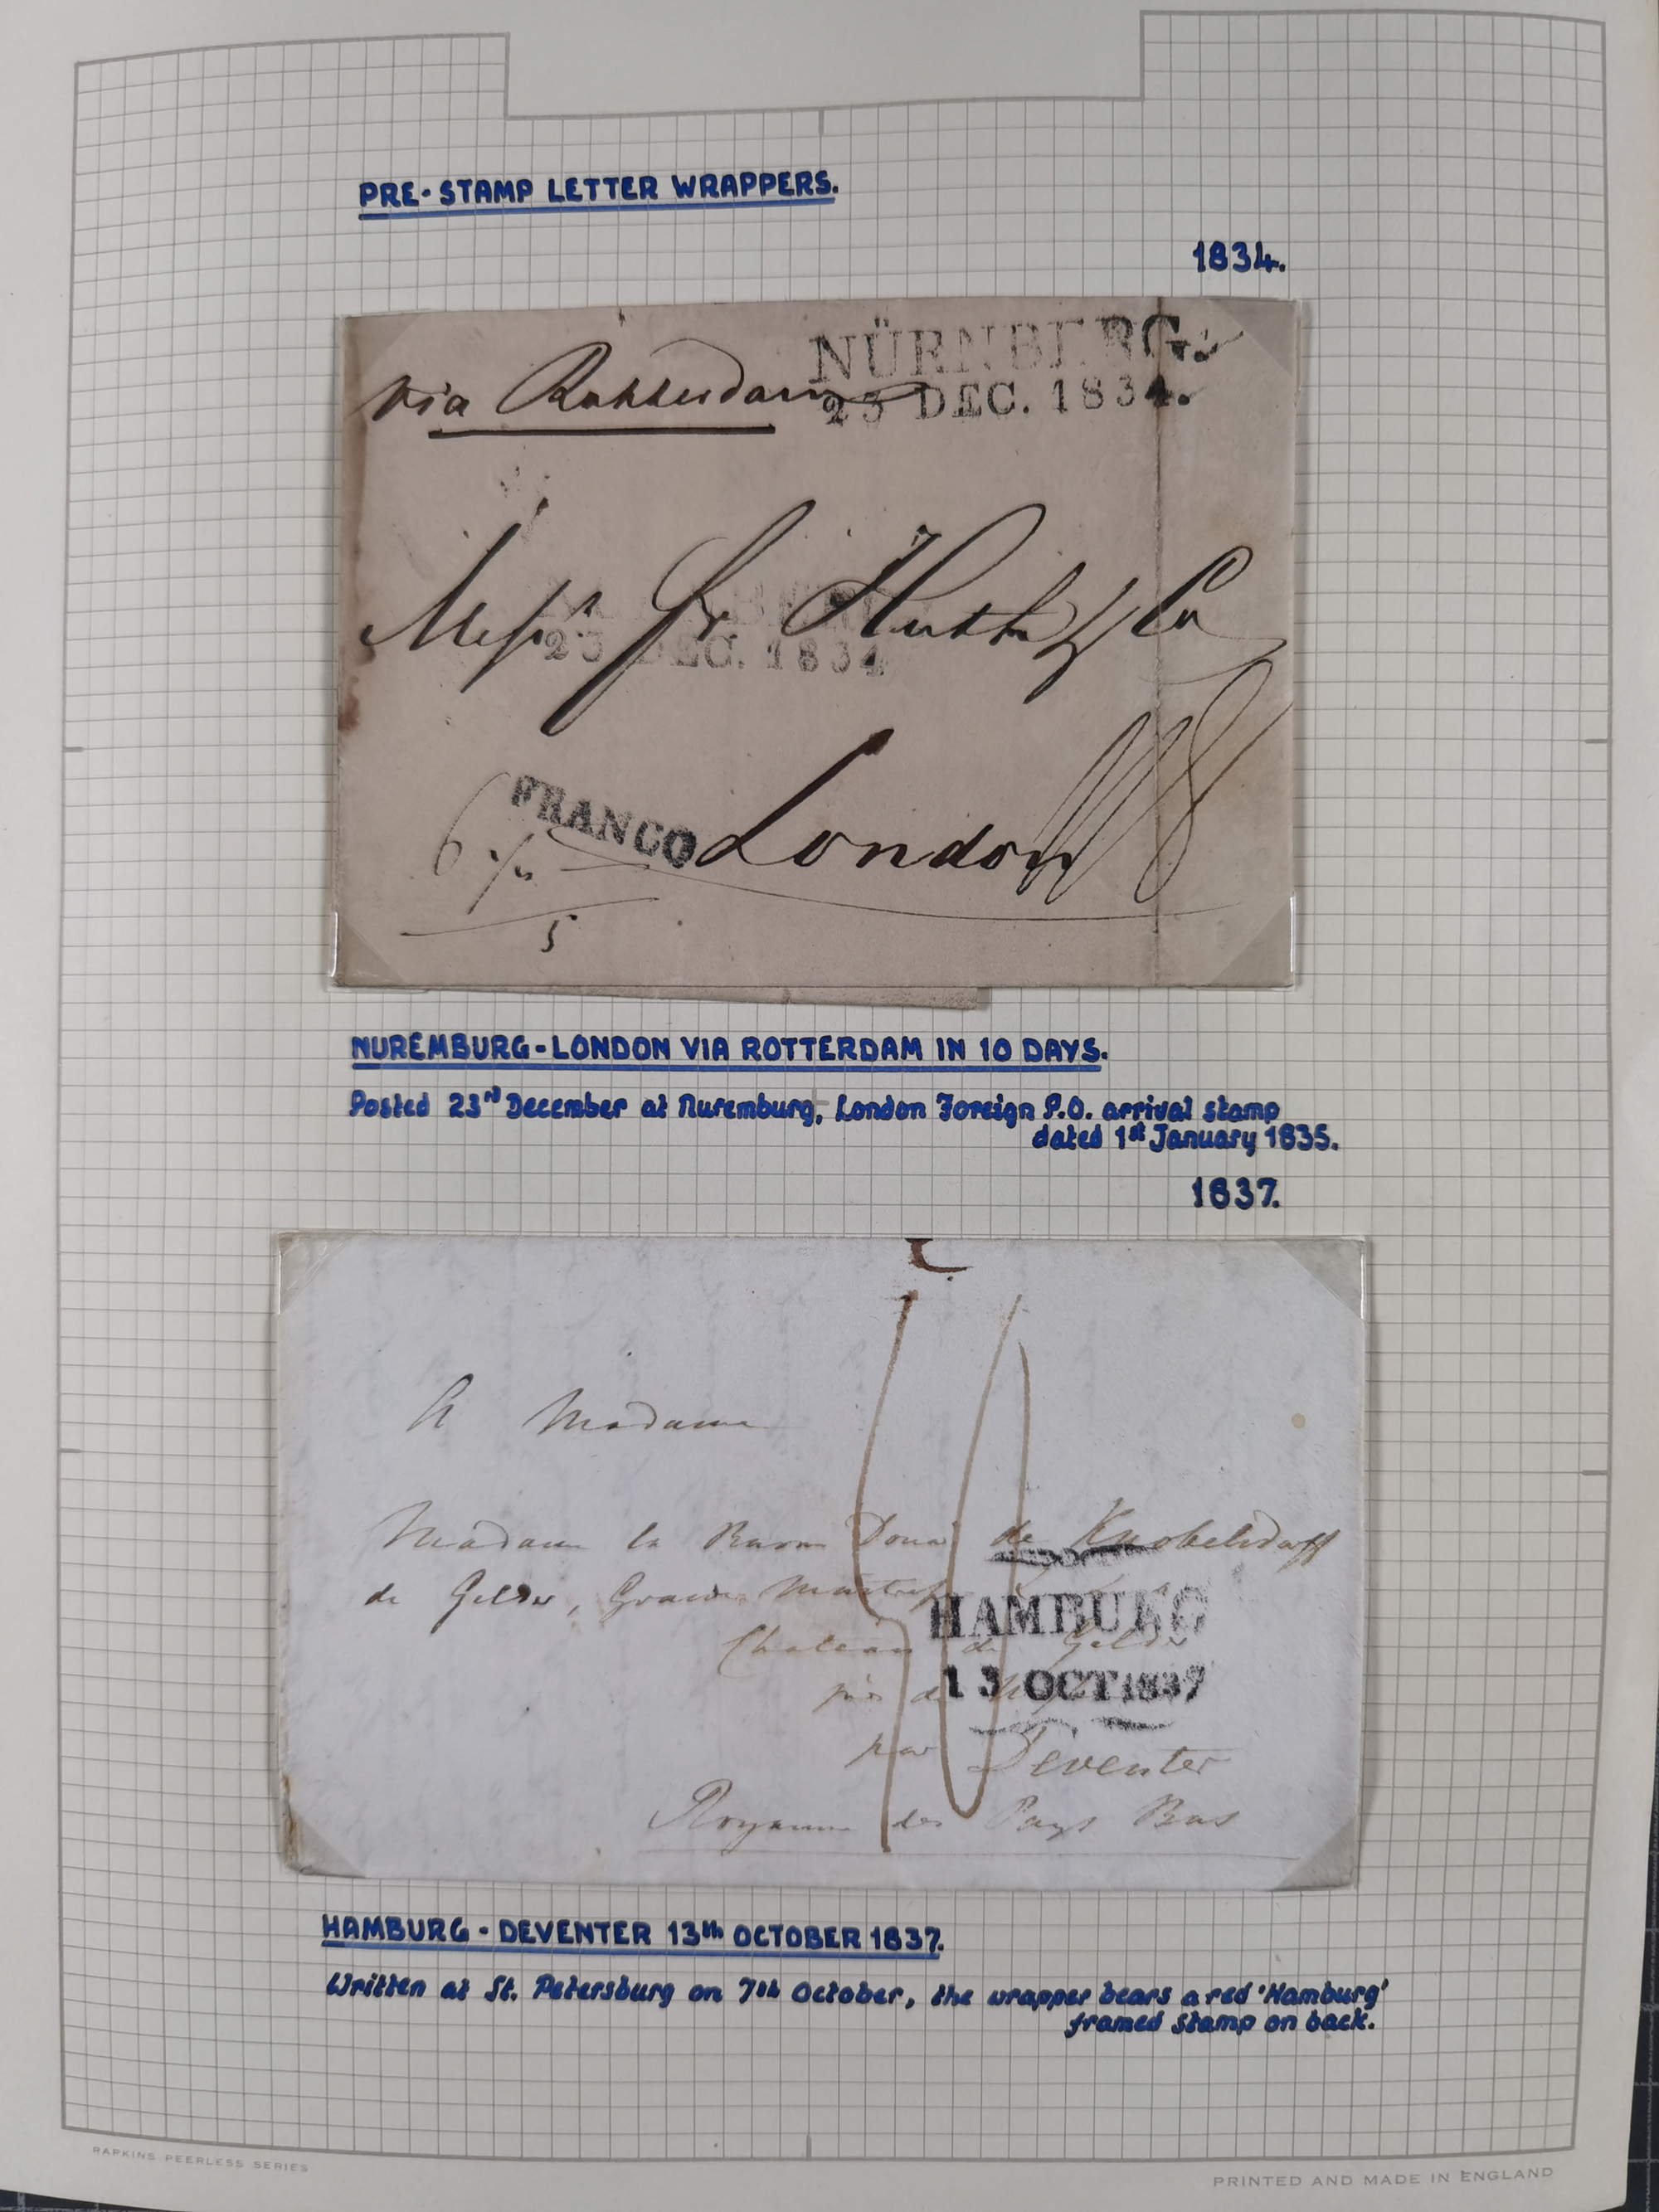 PRE-STAMP LETTER WRAPPERS.
1834.
NÜRNBERG.
via Rotterdam
23 DEC. 1834.
Messrs Fr. Huth & Co
23 DEC. 1834
FRANCO
London
6
5
NUREMBURG-LONDON VIA ROTTERDAM IN 10 DAYS.
Posted 23rd December at Nuremburg, London Foreign P.O. arrival stamp
dated 1st January 1835.
1837.
A Madame
Madame la Baronne Douai de Knobelsdorff
de Gelder, Grande Maitresse
HAMBURG
Chateau de Gelder
13 OCT 1837
près de
par Deventer
Royaume des Pays Bas
HAMBURG - DEVENTER 13th OCTOBER 1837.
Written at St. Petersburg on 7th October, the wrapper bears a red 'Hamburg'
framed stamp on back.
RAPKINS PEERLESS SERIES
PRINTED AND MADE IN ENGLAND